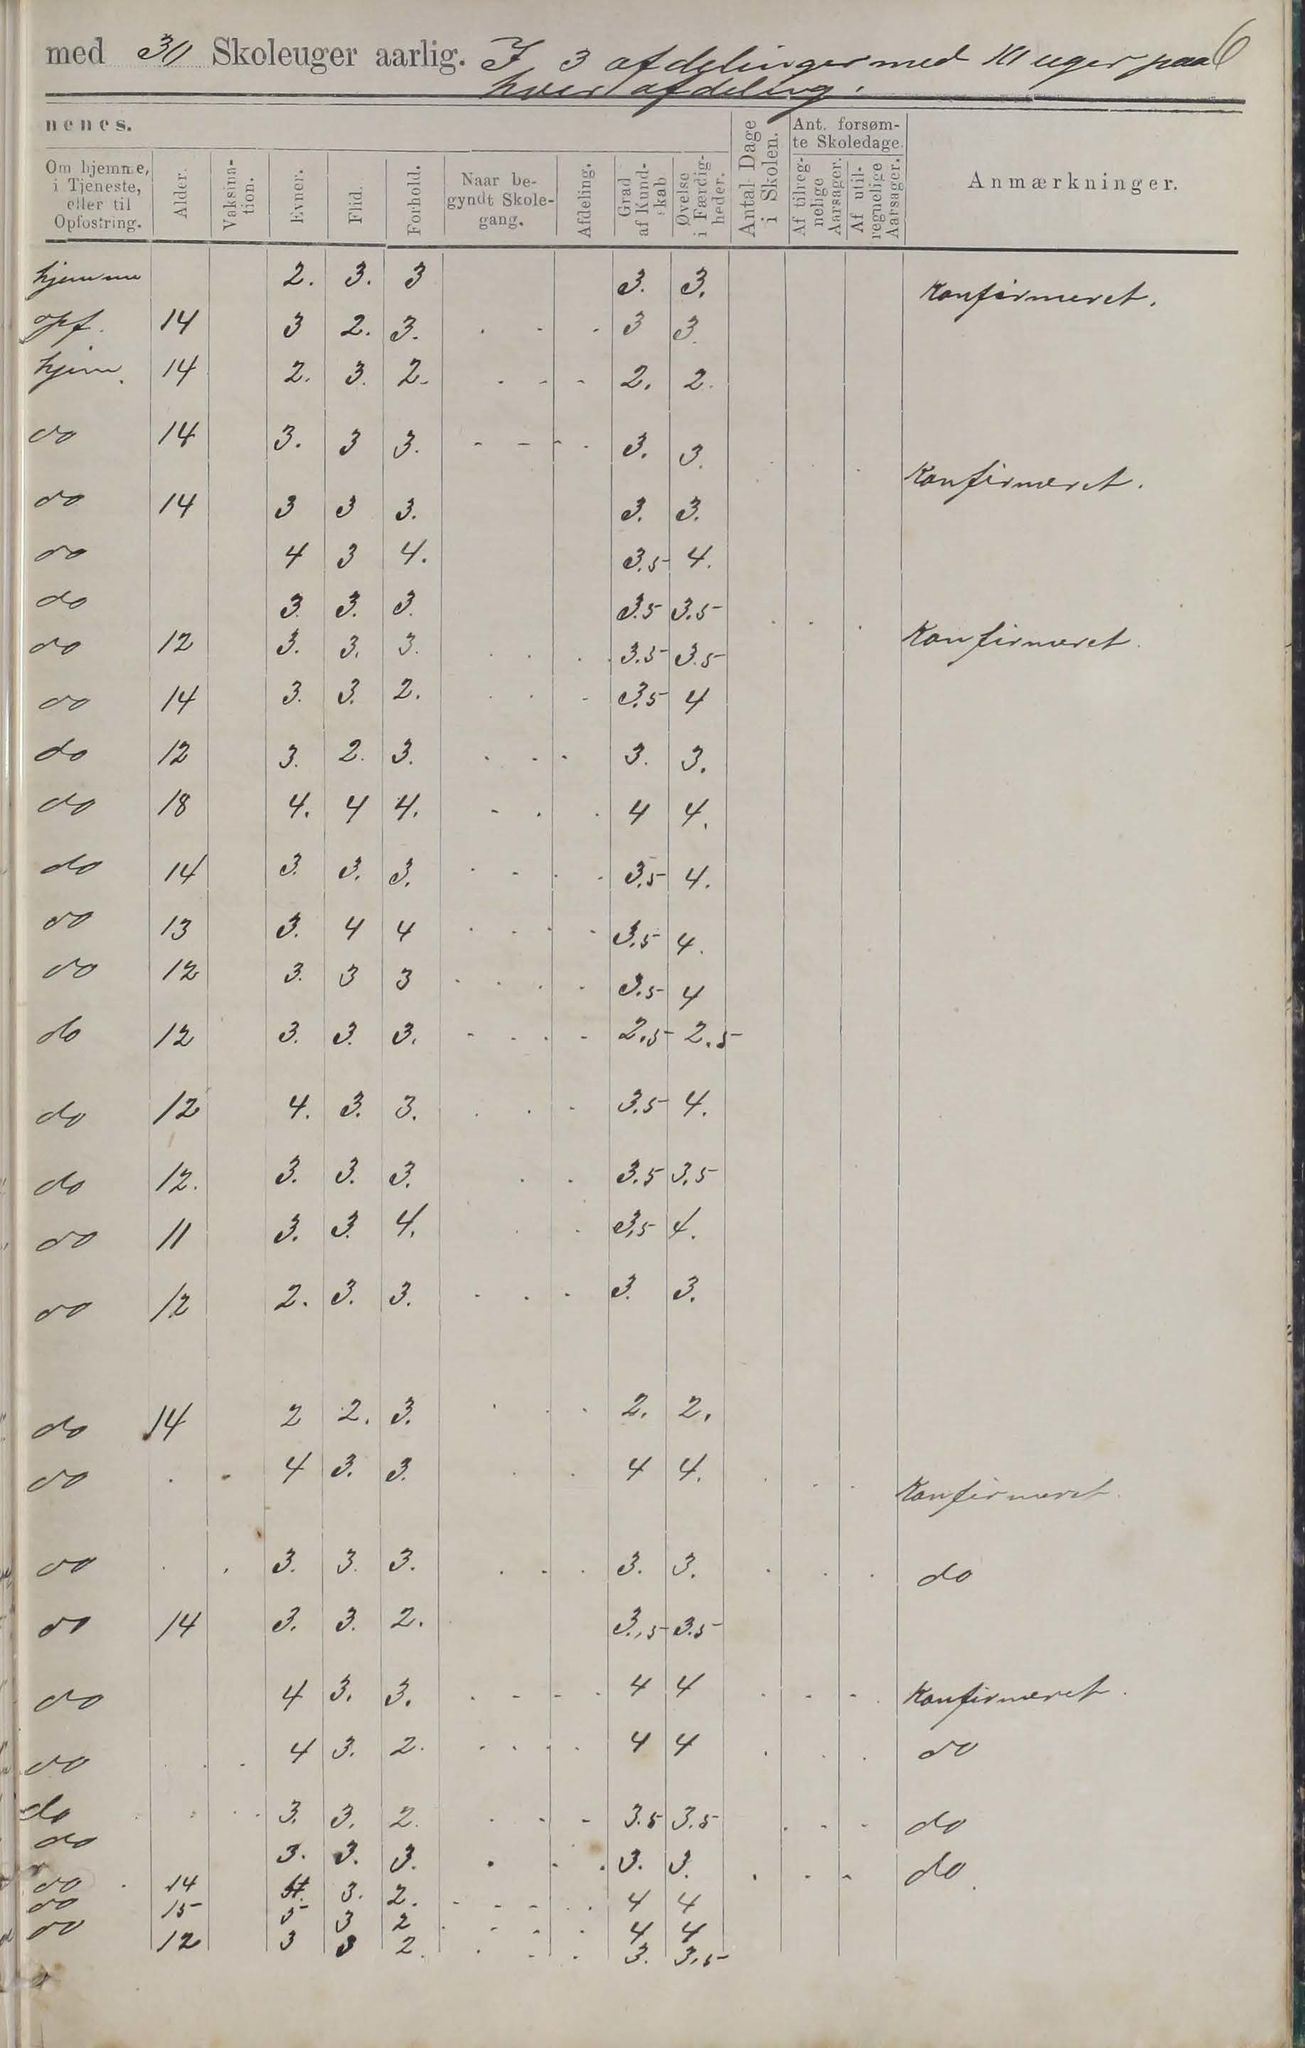 med 30 Skoleuger aarlig. I 3 afdelinger med 10 uger paa 6
hver afdeling.
nenes.
Om hjemme, i Tjeneste, eller til Opfostring. Alder. Vaksina-tion. Evner. Flid. Forhold. Naar be-gyndt Skole-gang. Afdeling. Grad af Kund-skab. Øvelse i Færdig-heder. Antal Dage i Skolen. Ant. forsøm-te Skoledage. Af tilreg-nelige Aarsager. Af util-regnelige Aarsager. Anmærkninger.
hjemme 2. 3. 3 3. 3. Konfirmeret.
opf. 14 3 2. 3. . . . 3 3.
hjem. 14 2. 3. 2. - - - 2. 2.
do 14 3. 3 3. - - - - 3. 3.
do 14 3 3 3. 3. 3. Konfirmeret.
do 4 3 4. 3.5 4.
do 3. 3. 3. 3.5 3.5
do 12 3. 3. 3. 3.5 3.5 Konfirmeret.
do 14 3. 3. 2. . . - 3.5 4
do 12 3. 2. 3. . - - 3. 3.
do 18 4. 4 4. - . . 4 4.
do 14 3. 3. 3. . - . . 3.5 4.
do 13 3. 4 4 . . . . 3.5 4.
do 12 3. 3 3 . . . . 3.5 4
do 12 3. 3. 3. - . . - 2.5 2.5
do 12 4. 3. 3. . . - 3.5 4.
do 12. 3. 3. 3. . . 3.5 3.5
do 11 3. 3. 4. . . 3.5 4.
do 12 2. 3. 3. . . . 3. 3.
do 14 2 2. 3. . . . 2. 2.
do . - 4 3. 3. . . 4 4. . . . Konfirmeret.
do . . 3. 3. 3. . . . 3. 3. . . . do
do 14 3. 3. 2. 3.5 3.5
do 4 3. 3. . - - - 4 4 . - - . Konfirmeret.
do . . 4 3. 2. . . . . 4 4 . . . do
do . . . 3. 3. 2. . . - 3.5 3.5 . - . do
do 3. 3. 3. . . . 3. 3. . . - do.
do . 14 4. 3. 2. . - - . 4 4
do 15 3 3 2 . . . . 4 4
do 12 3 3 2. . . . 3. 3.5